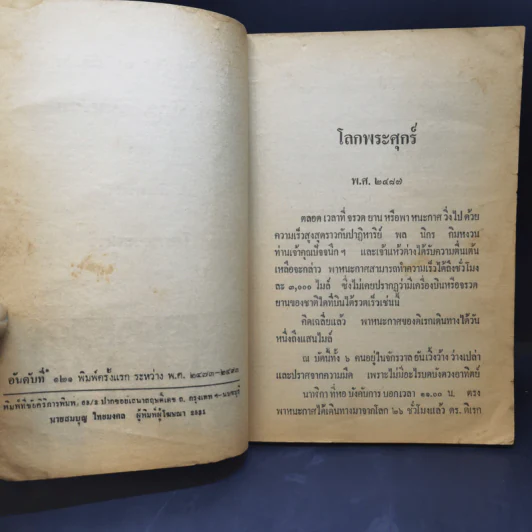 อันดับที่ ๑๒๑ พิมพ์ครั้งแรก ระหว่าง พ.ศ.
นายสมบุญ ไทยมงคล ผู้พิมพ์ผู้โฆษณา
โลกพระศุกร์
พ.ศ. ๒๔๘๗
ตลอด เวลาที่ จรวด ยาน หรือพา หนะกาศ วิ่งไป ด้วย
ความเร็วสูงสุดราวกับปาฏิหาริย์ พล นิกร กิมหงวน
ท่านเจ้าคุณปัจจนึก ฯ และเจ้าแห้วต่างได้รับความตื่นเต้น
เหลือจะกล่าว พาหนะกาศสามารถทำความเร็วได้ถึงชั่วโมง
ละ ๓,๐๐๐ ไมล์ ซึ่งไม่เคยปรากฏว่ามีเครื่องบินหรือจรวด
ยานของชาติใดที่บินได้รวดเร็วเช่นนี้
คิดเฉลี่ยแล้ว พาหนะกาศของดิเรกเดินทางได้วัน
หนึ่งถึงแสนไมล์
ณ บัดนี้ทั้ง ๖ คนอยู่ในจักรวาล อันเวิ้งว้าง ว่างเปล่า
และปราศจากความมืด เพราะไม่มีอะไรบดบังดวงอาทิตย์
นาฬิกา ที่หอ บังคับการ บอกเวลา ๑๑.๐๐ น. ตรง
พาหนะกาศได้เดินทางมาจากโลก ๒๖ ชั่วโมงแล้ว ดร. ดิเรก